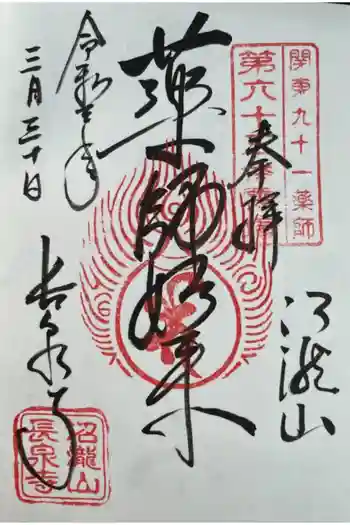 関東九十一薬師
第六十
奉拝
沼瀧山
薬師如来
令和
三月三十日
長泉寺
沼瀧山
長泉寺